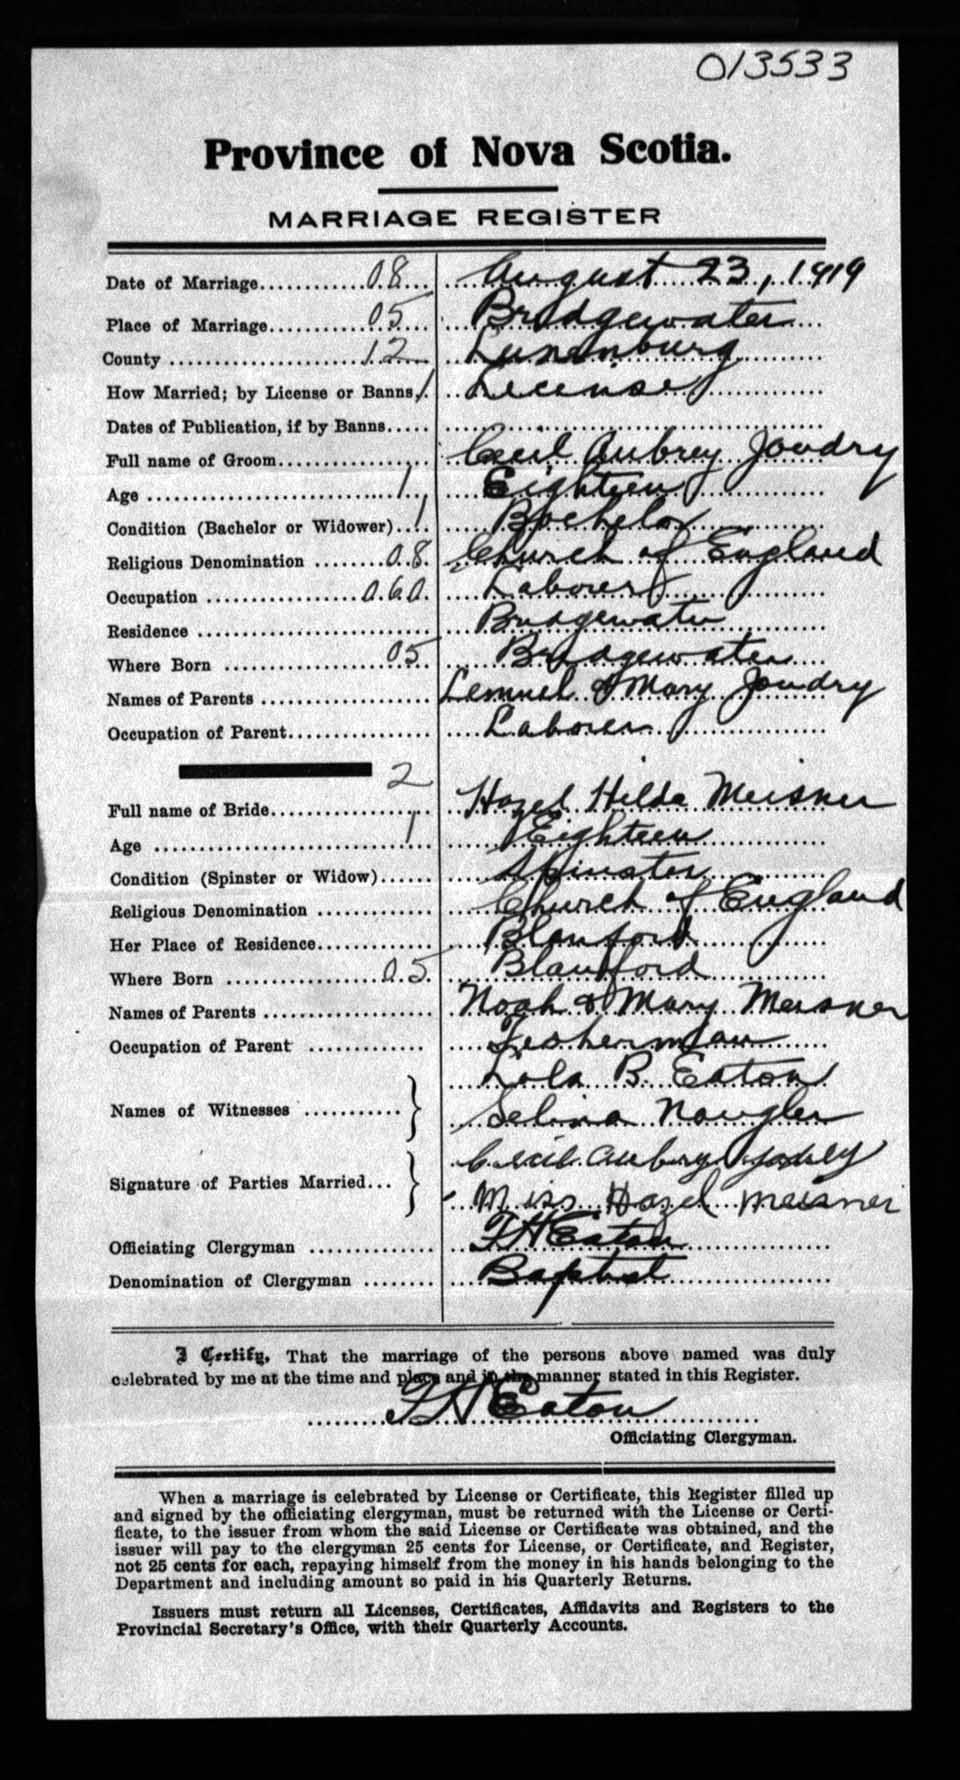 013533
Province of Nova Scotia.
MARRIAGE REGISTER
Date of Marriage............08... August 23, 1919
Place of Marriage...........05... Bridgewater
County ...................12... Lunenburg
How Married; by License or Banns 1. License
Dates of Publication, if by Banns.....
Full name of Groom................ Cecil Aubrey Joudry
Age ..........................1. Eighteen
Condition (Bachelor or Widower)...1 Bachelor
Religious Denomination .......08. Church of England
Occupation ................060. Laborer
Residence .......................... Bridgewater
Where Born ..................05. Bridgewater
Names of Parents ................... Lemuel & Mary Joudry
Occupation of Parent................ Laborer
2
Full name of Bride.................. Hazel Hilda Meisner
Age ............................1.. Eighteen
Condition (Spinster or Widow)...... Spinster
Religious Denomination ............. Church of England
Her Place of Residence............. Blanford
Where Born .................05. Blandford
Names of Parents ................... Noah & Mary Meisner
Occupation of Parent ............. Fisherman
Lola B. Eaton
Names of Witnesses ...........} Selina Naugler
Cecil Aubry
Signature of Parties Married...} Miss Hazel Meisner
Officiating Clergyman .............. FH Eaton
Denomination of Clergyman ........ Baptist
I Certify, That the marriage of the persons above named was duly
celebrated by me at the time and place and in the manner stated in this Register.
FH Eaton
Officiating Clergyman.
When a marriage is celebrated by License or Certificate, this Register filled up
and signed by the officiating clergyman, must be returned with the License or Certi-
ficate, to the issuer from whom the said License or Certificate was obtained, and the
issuer will pay to the clergyman 25 cents for License, or Certificate, and Register,
not 25 cents for each, repaying himself from the money in his hands belonging to the
Department and including amount so paid in his Quarterly Returns.
Issuers must return all Licenses, Certificates, Affidavits and Registers to the
Provincial Secretary's Office, with their Quarterly Accounts.